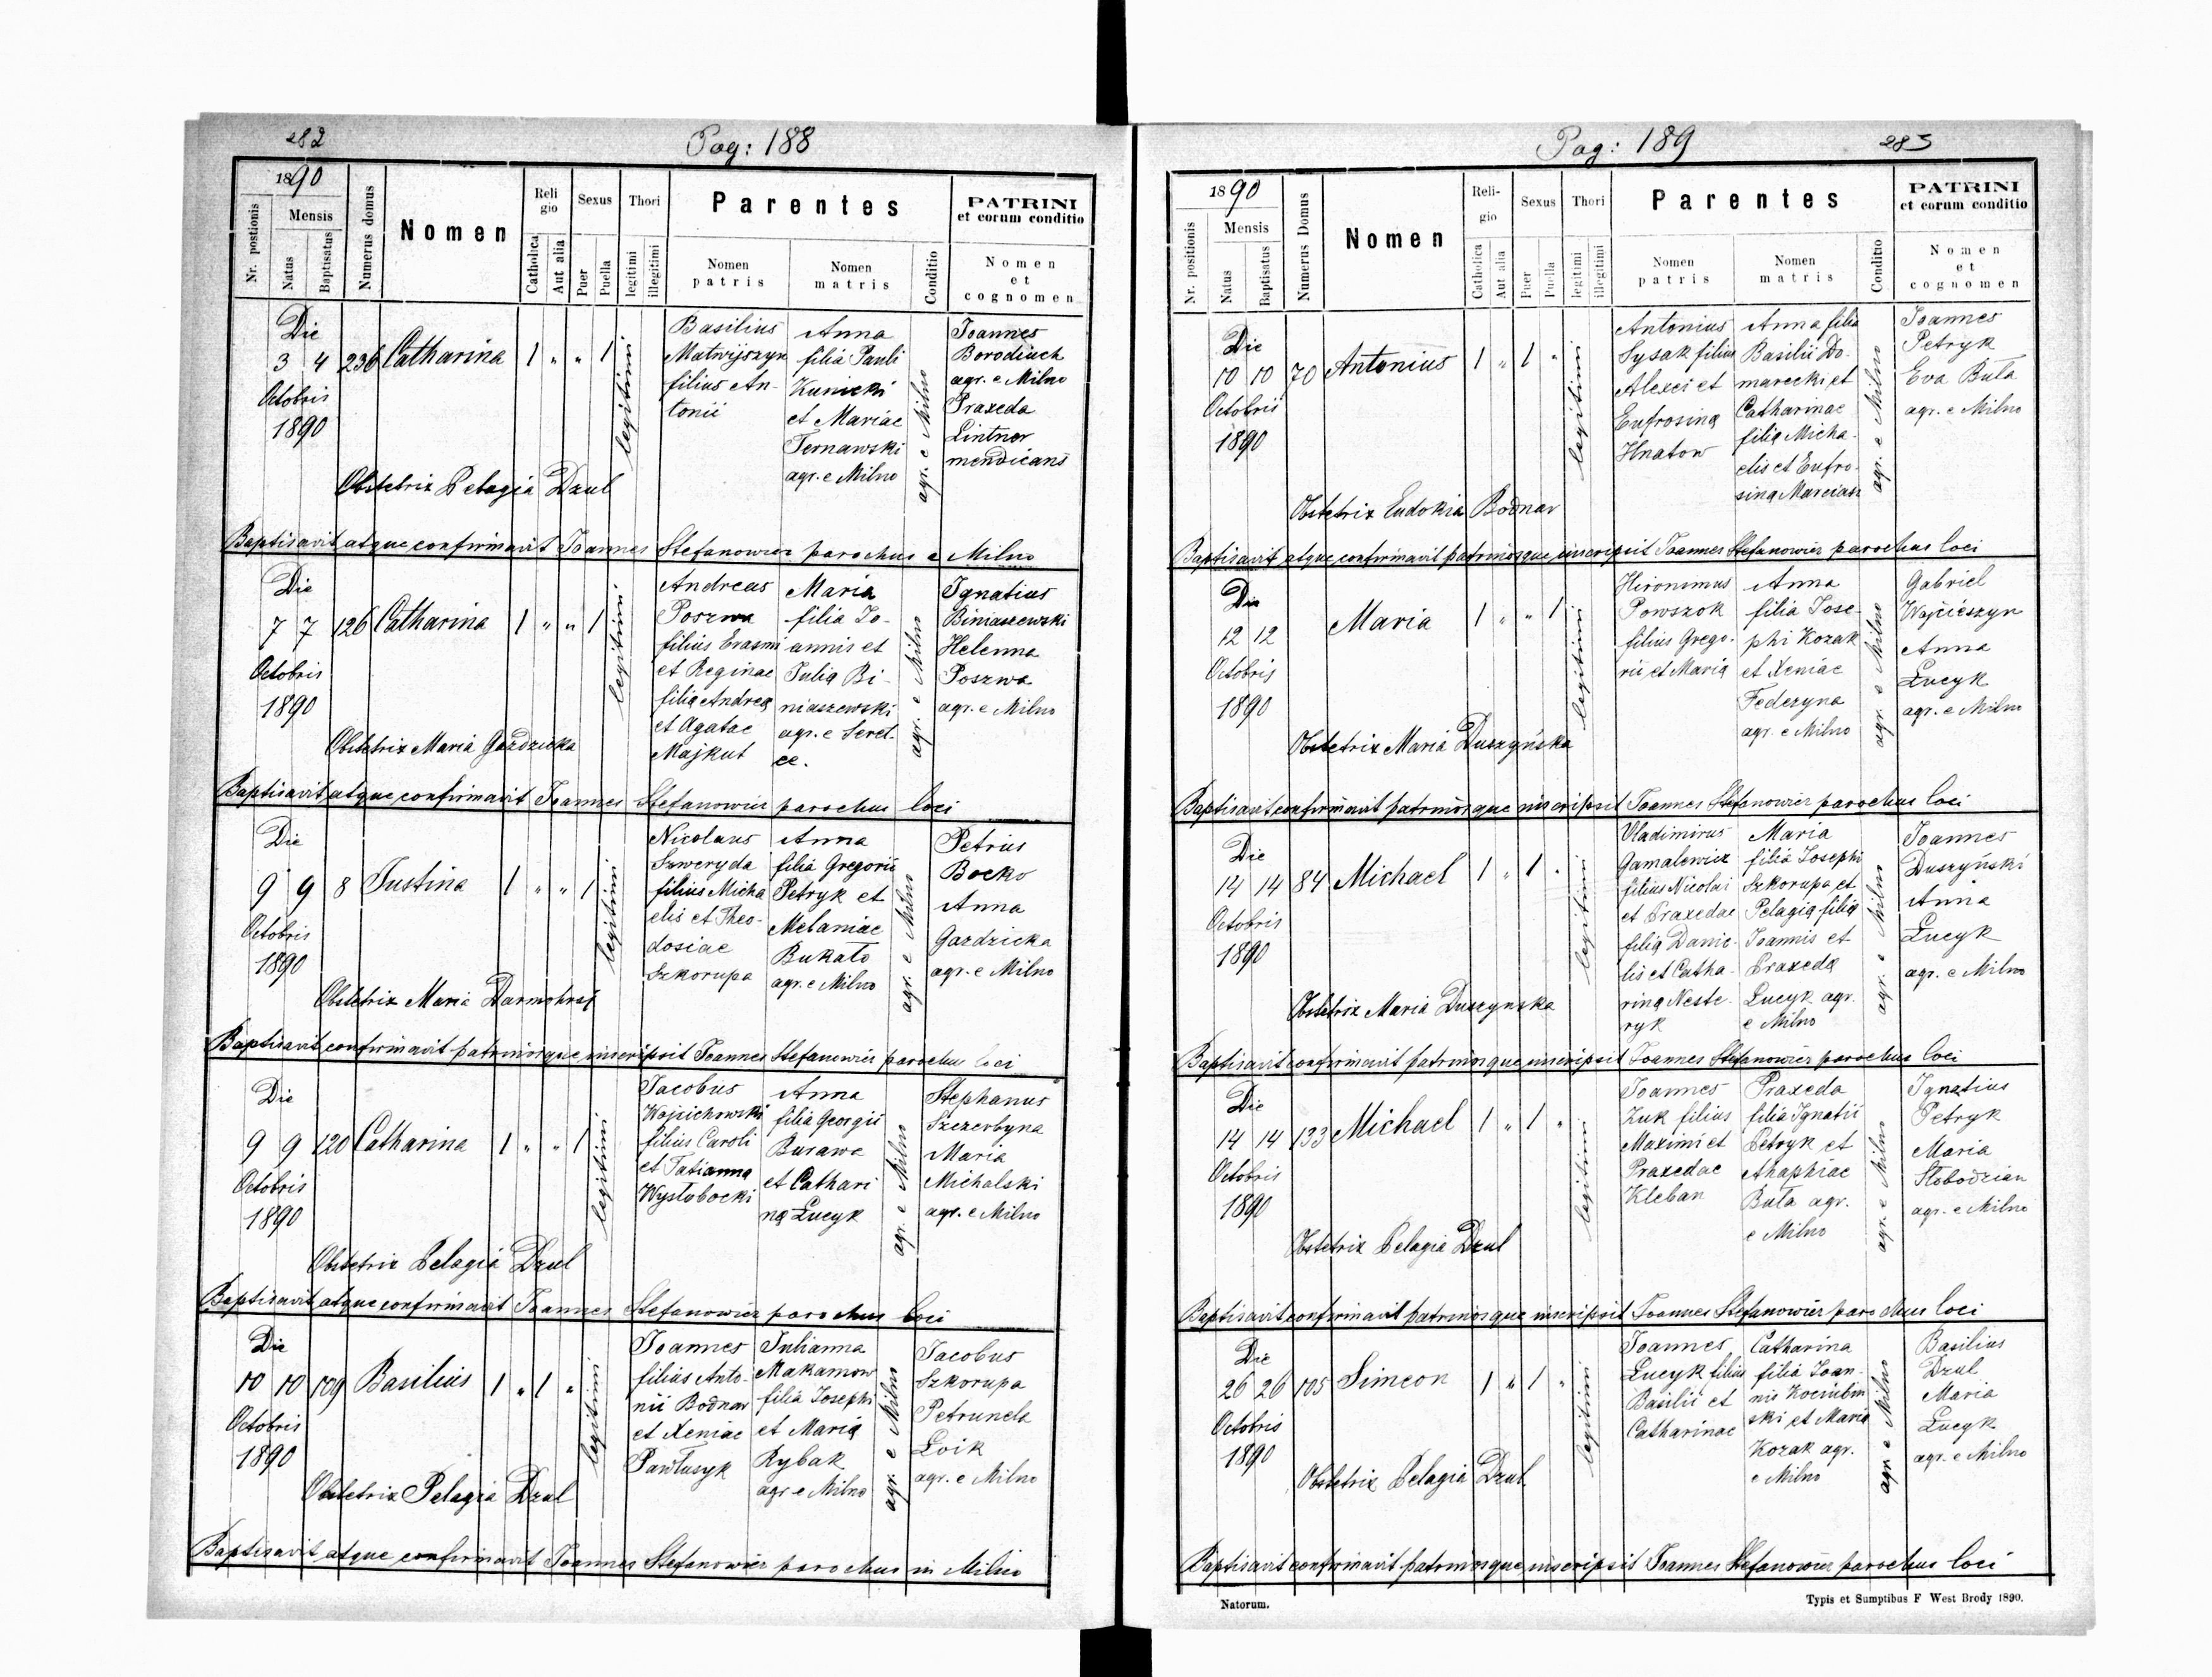 282
Pag: 188
1890
Nr. postionis
Mensis
Natus
Baptisatus
Numerus domus
Nomen
Reli
gio
Catholica
Aut alia
Sexus
Puer
Puella
Thori
legitimi
illegitimi
Parentes
Nomen
patris
Nomen
matris
Conditio
PATRINI
et eorum conditio
Nomen
et
cognomen
Die
3 4 236 Catharina 1 " " 1
Octobris
1890
legitimi
Basilius
Matwijszyn
filius An-
tonii
Anna
filia Pauli
Kunicki
et Mariae
Ternawski
agr. e Milno
agr. e Milno
Joannes
Borodiuch
agr. e Milno
Praxeda
Lintner
mendicans
Obstetrix Pelagia Dzul
Baptisavit atque confirmavit Joannes Stefanowicz parochus e Milno
Die
7 7 126 Catharina 1 " " 1
Octobris
1890
legitimi
Andreas
Poszwa
filius Erasmi
et Reginae
filia Andrea
et Agatae
Majkut
Maria
filia Jo-
annis et
Julia Bi-
niaszewski
agr. e Seret-
ce.
agr. e Milno
Ignatius
Biniaszewski
Helenna
Poszwa
agr. e Milno
Obstetrix Maria Gazdzicka
Baptisavit atque confirmavit Joannes Stefanowicz parochus loci
Die
9 9 8 Justina 1 " " 1
Octobris
1890
legitimi
Nicolaus
Szweryda
filius Micha
elis et Theo-
dosiae
Szkorupa
Anna
filia Gregorii
Petryk et
Melaniae
Bukato
agr. e Milno
agr. e Milno
Petrus
Bocko
Anna
Gazdzicka
agr. e Milno
Obstetrix Maria Darmohraj
Baptisavit confirmavit patrinosque inscripsit Joannes Stefanowicz parochus loci
Die
9 9 120 Catharina 1 " " 1
Octobris
1890
legitimi
Jacobus
Wojcichowski
filius Caroli
et Tatianna
Wysłobocki
Anna
filia Georgii
Burawa
et Cathari
na Łucyk
agr. e Milno
Stephanus
Szczerbyna
Maria
Michalski
agr. e Milno
Obstetrix Pelagia Dzul
Baptisavit atque confirmavit Joannes Stefanowicz parochus loci
Die
10 10 109 Basilius 1 " 1 "
Octobris
1890
legitimi
Joannes
filius Anto-
nii Bodnar
et Xeniae
Pawłusyk
Julianna
Makamow
filia Josephi
et Maria
Rybak
agr e Milno
agr. e Milno
Jacobus
Szkorupa
Petrunela
Łoik
agr. e Milno
Obstetrix Pelagia Dzul
Baptisavit atque confirmavit Joannes Stefanowicz parochus in Milno
Pag: 189
283
1890
Nr. positionis
Mensis
Natus
Baptisatus
Numerus Domus
Nomen
Reli-
gio
Catholica
Aut alia
Sexus
Puer
Puella
Thori
legitimi
illegitimi
Parentes
Nomen
patris
Nomen
matris
Conditio
PATRINI
et eorum conditio
Nomen
et
cognomen
Die
10 10 70 Antonius 1 " 1 "
Octobris
1890
legitimi
Antonius
Sysak filius
Alexei et
Eufrosina
Hnatow
Anna filia
Basilii Do-
marecki et
Catharinae
filia Micha-
elis et Eufro-
sina Marciasz
agr. e Milno
Joannes
Petryk
Eva Buta
agr. e Milno
Obstetrix Eudokia Bodnar
Baptisavit atque confirmavit patrinosque inscripsit Joannes Stefanowicz parochus loci
Die
12 12 Maria 1 " " 1
Octobris
1890
legitimi
Hironimus
Powszok
filius Grego-
rii et Maria
Anna
filia Jose-
phi Kozak
et Xeniae
Fedczyna
agr. e Milno
agr. e Milno
Gabriel
Wojcieszyn
Anna
Łucyk
agr. e Milno
Obstetrix Maria Duszyńska
Baptisavit confirmavit patrinosque inscripsit Joannes Stefanowicz parochus loci
Die
14 14 84 Michael 1 " 1 "
Octobris
1890
legitimi
Vladimirus
Gamalewicz
filius Nicolai
et Praxedae
filia Danie-
lis et Catha-
rina Neste-
ryk
Maria
filia Josephi
Szkorupa et
Pelagia filia
Joannis et
Praxeda
Łucyk agr.
e Milno
agr. e Milno
Joannes
Duszyński
Anna
Łucyk
agr. e Milno
Obstetrix Maria Duszynska
Baptisavit confirmavit patrinosque inscripsit Joannes Stefanowicz parochus loci
Die
14 14 133 Michael 1 " 1 "
Octobris
1890
legitimi
Joannes
Zuk filius
Maximi et
Praxedae
Kleban
Praxeda
filia Ignatii
Petryk et
Ahaphiae
Buta agr.
e Milno
agr. e Milno
Ignatius
Petryk
Maria
Słobodzian
agr. e Milno
Obstetrix Pelagia Dzul
Baptisavit confirmavit patrinosque inscripsit Joannes Stefanowicz parochus loci
Die
26 26 105 Simeon 1 " 1 "
Octobris
1890
legitimi
Joannes
Łucyk filius
Basilii et
Catharinae
Catharina
filia Joan-
nis Kociubin
ski et Maria
Kozak agr.
e Milno
agr. e Milno
Basilius
Dzul
Maria
Łucyk
agr. e Milno
Obstetrix Pelagia Dzul
Baptisavit confirmavit patrinosque inscripsit Joannes Stefanowicz parochus loci
Natorum.
Typis et Sumptibus F West Brody 1890.